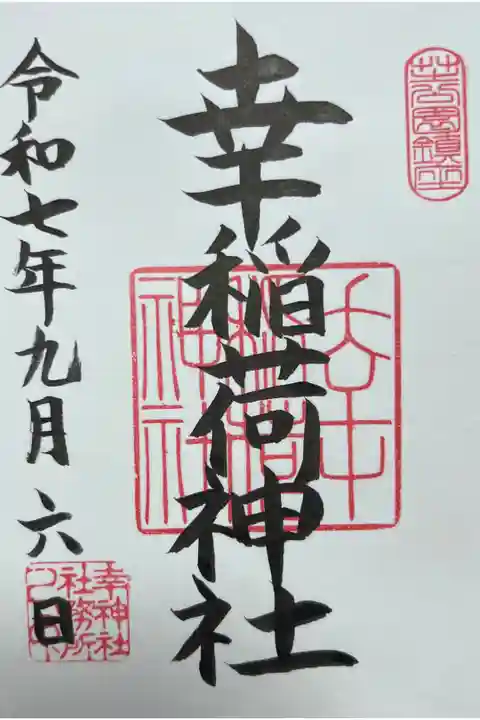 芝公園鎮座
幸稲荷神社
幸稲荷神社
令和七年九月六日
幸神社
社務所